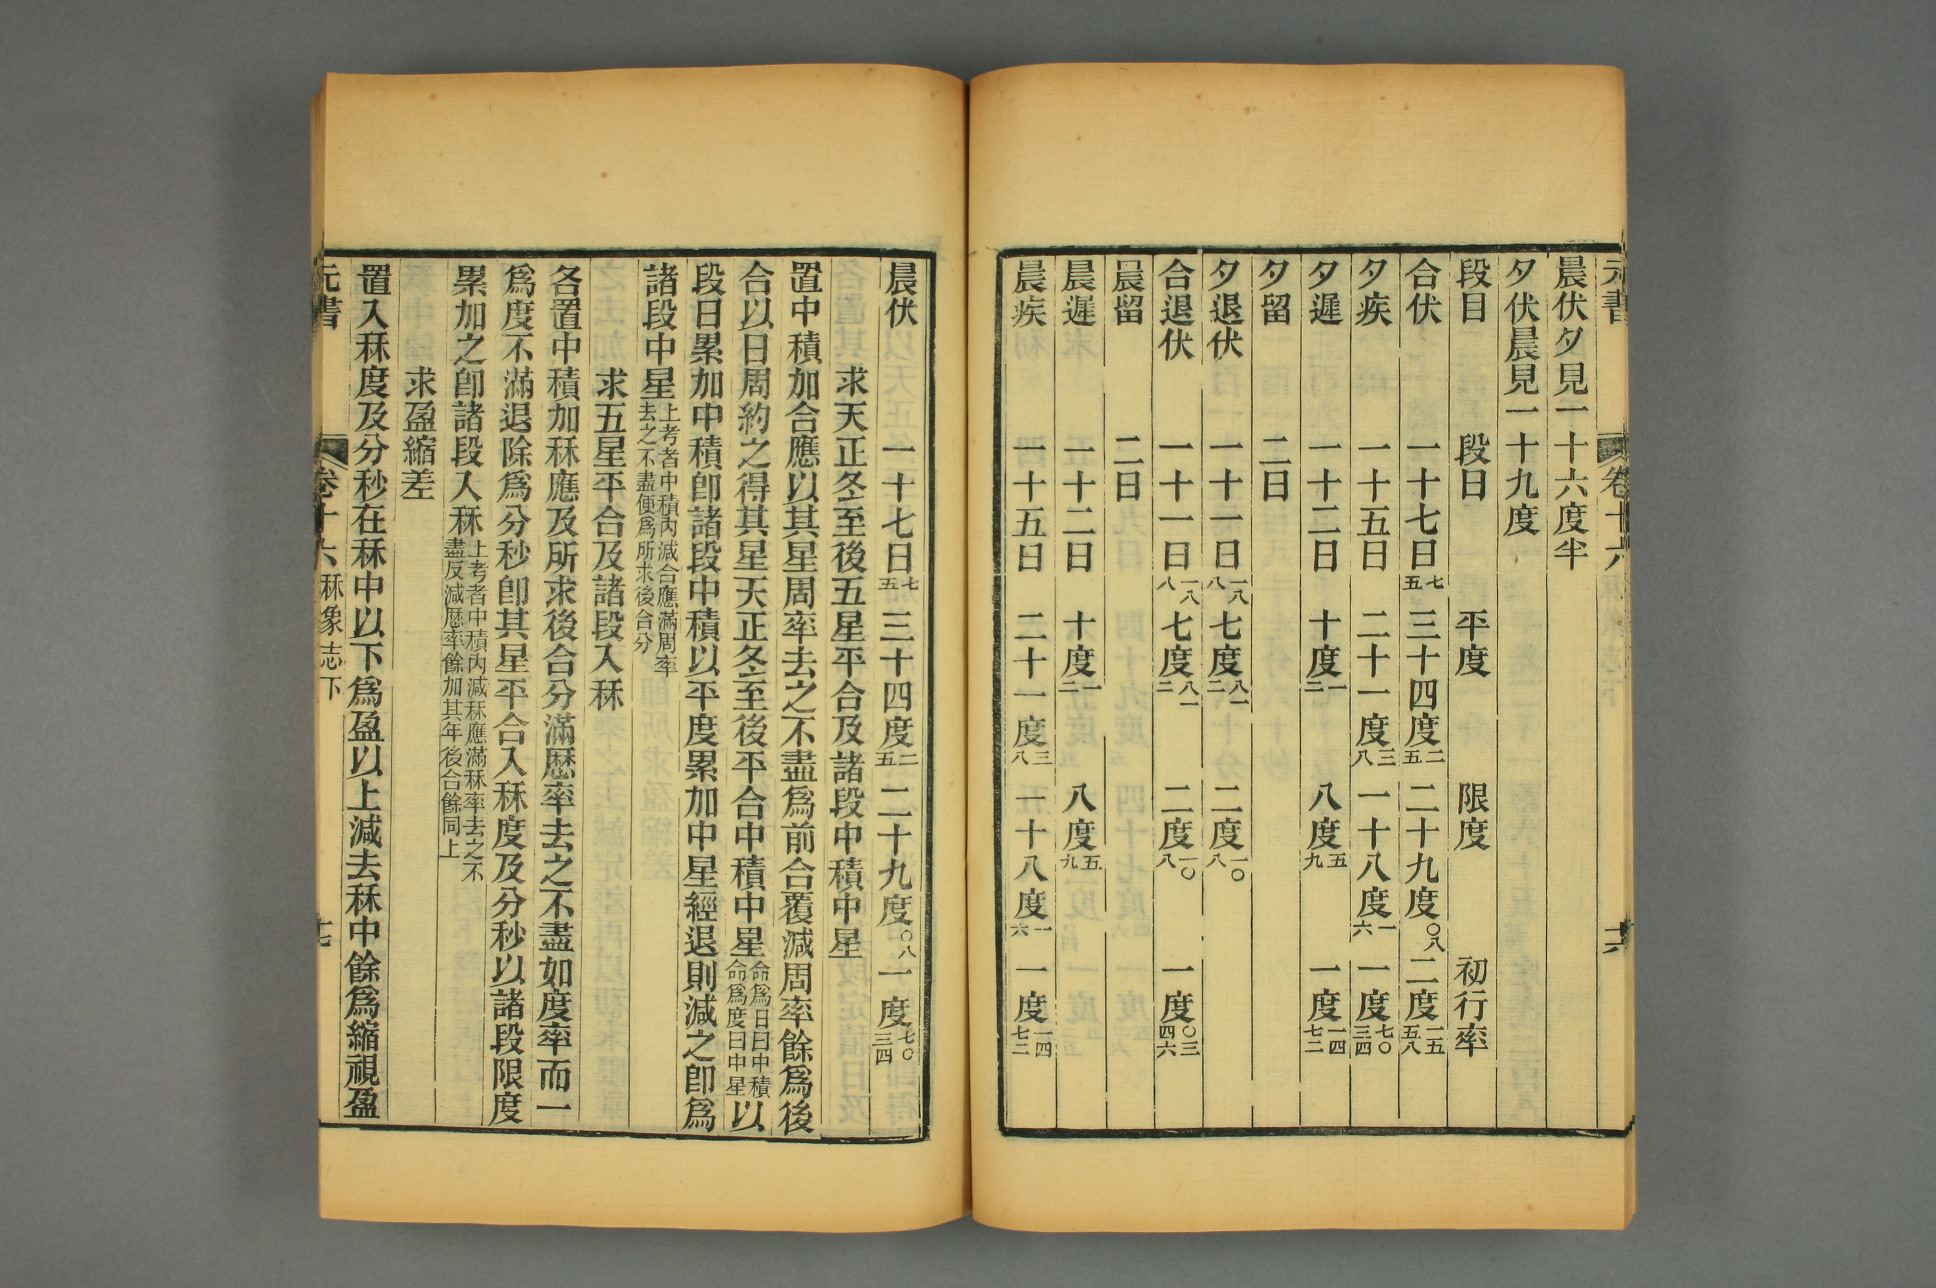 元書 卷十六 秝象志下 十六
晨伏夕見一十六度半
夕伏晨見一十九度
段目 段日 平度 限度 初行率
合伏 一十七日七五 三十四度二五 二十九度〇八 二度一五五八
夕疾 一十五日 二十一度三八 一十八度一六 一度七〇三四
夕遲 一十二日 十度一二 八度五九 一度一四七二
夕留 二日
夕退伏 一十一日一八八 七度八一二 二度一〇八
合退伏 一十一日一八八 七度八一二 二度一〇八 一度〇三四六
晨留 二日
晨遲 一十二日 十度一二 八度五九
晨疾 一十五日 二十一度三八 一十八度一六 一度一四七二
晨伏 一十七日七五 三十四度二五 二十九度〇八 一度七〇三四
求天正冬至後五星平合及諸段中積中星
置中積加合應以其星周率去之不盡爲前合覆減周率餘爲後
合以日周約之得其星天正冬至後平合中積中星命爲日曰中積命爲度曰中星以
段日累加中積卽諸段中積以平度累加中星經退則減之卽爲
諸段中星上考者中積內減合應滿周率去之不盡便爲所求後合分
求五星平合及諸段入秝
各置中積加秝應及所求後合分滿歷率去之不盡如度率而一
爲度不滿退除爲分秒卽其星平合入秝度及分秒以諸段限度
累加之卽諸段入秝上考者中積內減秝應滿秝率去之不盡反減歷率餘加其年後合餘同上
求盈縮差
置入秝度及分秒在秝中以下爲盈以上減去秝中餘爲縮視盈
元書 卷十六 秝象志下 十七